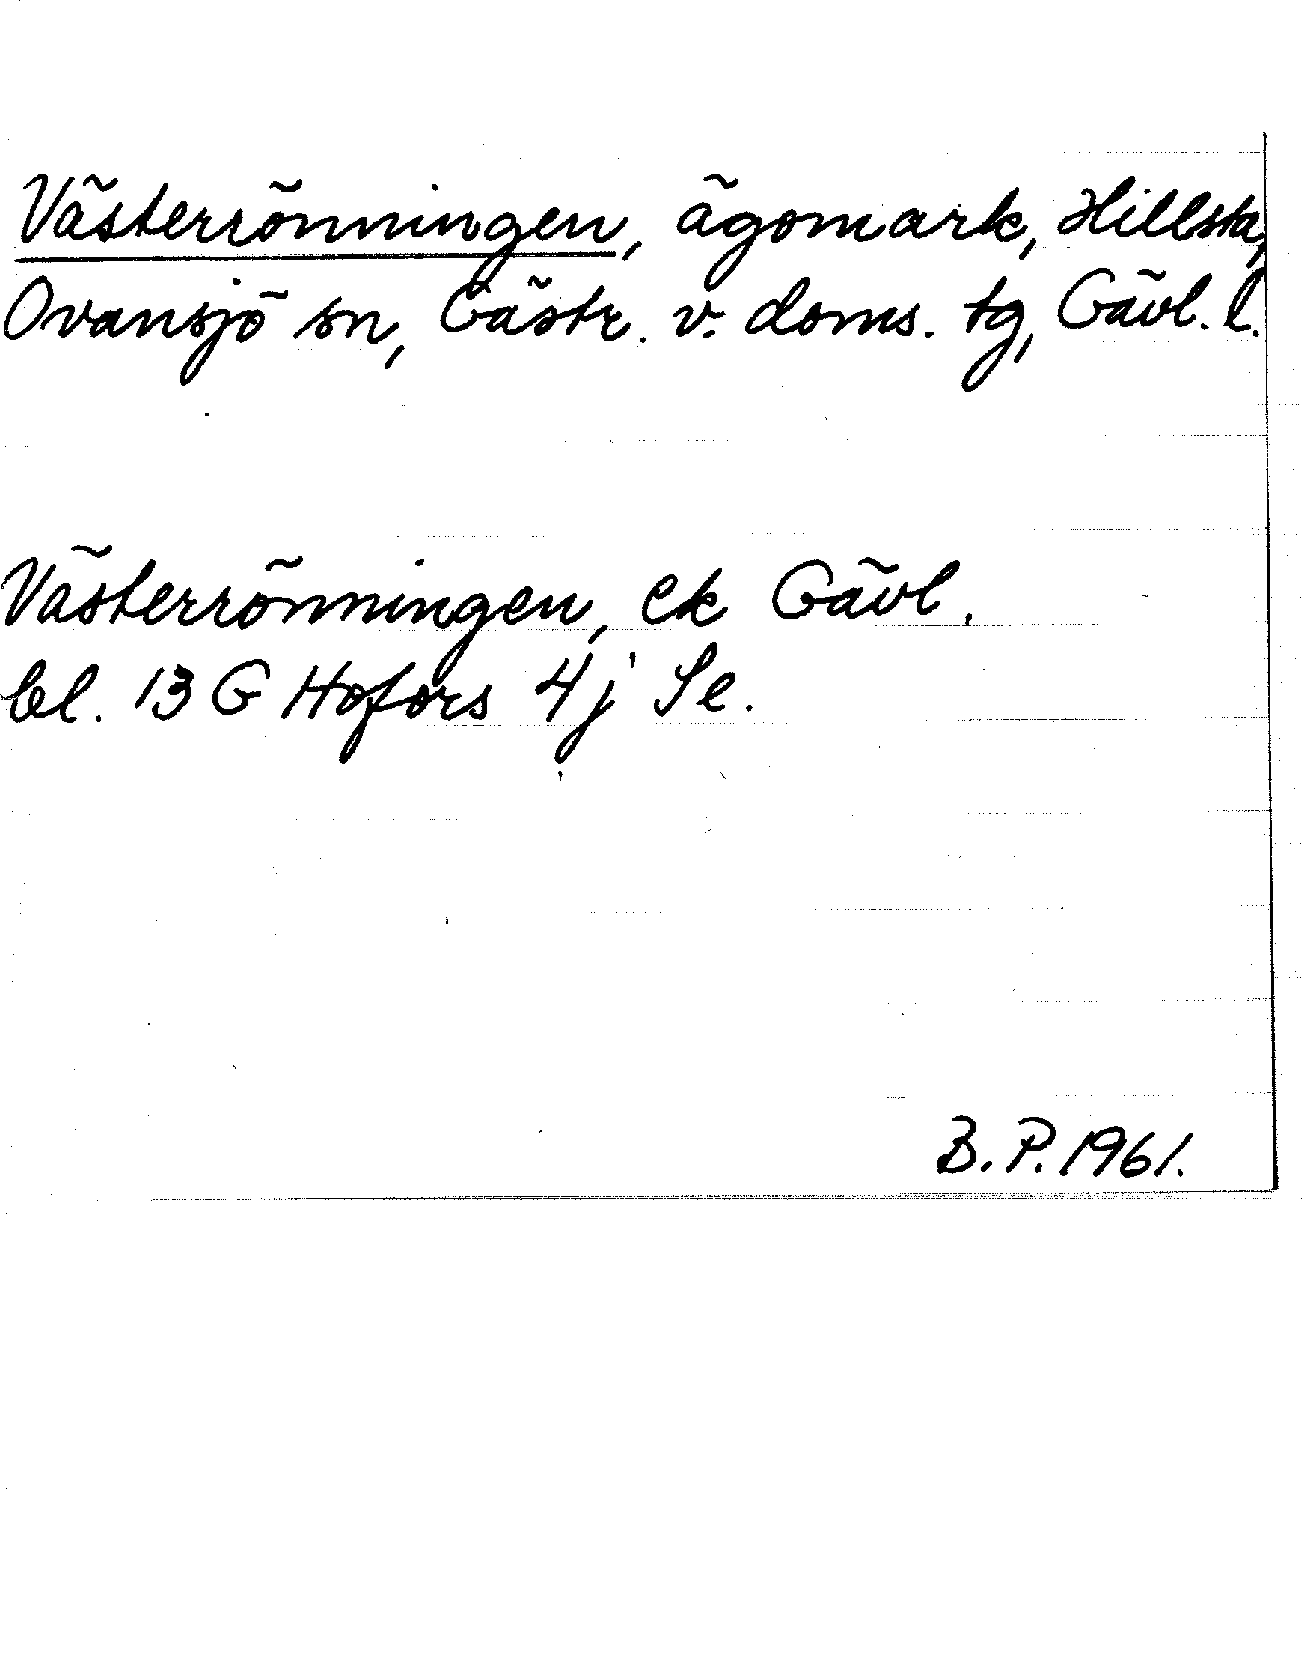 Västerrönningen, ägomark, Hillsta,
Ovansjö sn, Gästr. v. doms. tg, Gävl. l.
Västerrönningen, ek Gävl.
bl. 13 G Hofors 4j Se.
B.P. 1961.